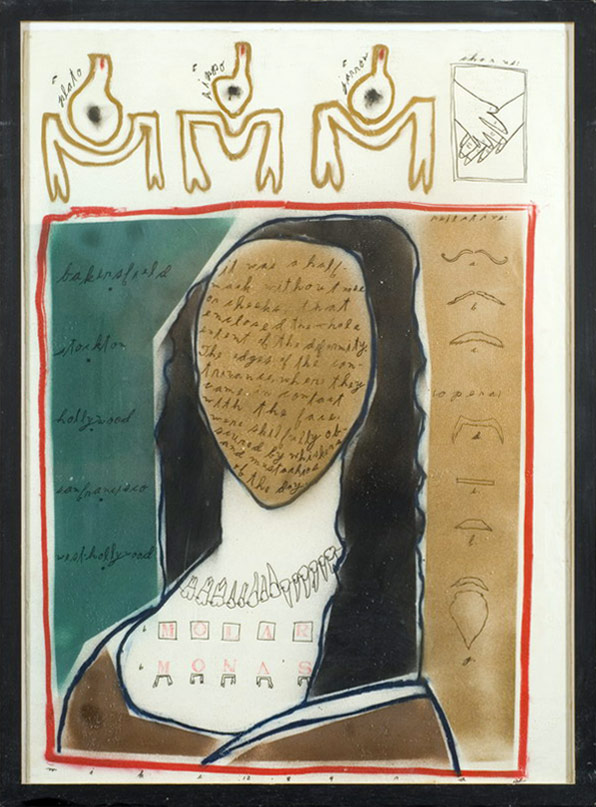 plato
bakersfield
stockton
hollywood
san francisco
west hollywood
it was a half-
mask without nose
or cheeks that
enclosed the whole
extent of the deformity.
The edges of the con-
trivance where they
came in contact
with the face
were skilfully ob-
scured by whiskers
and mustachios
of the day.
a
b
c
d
e
f
g
MOLAR
MONAS